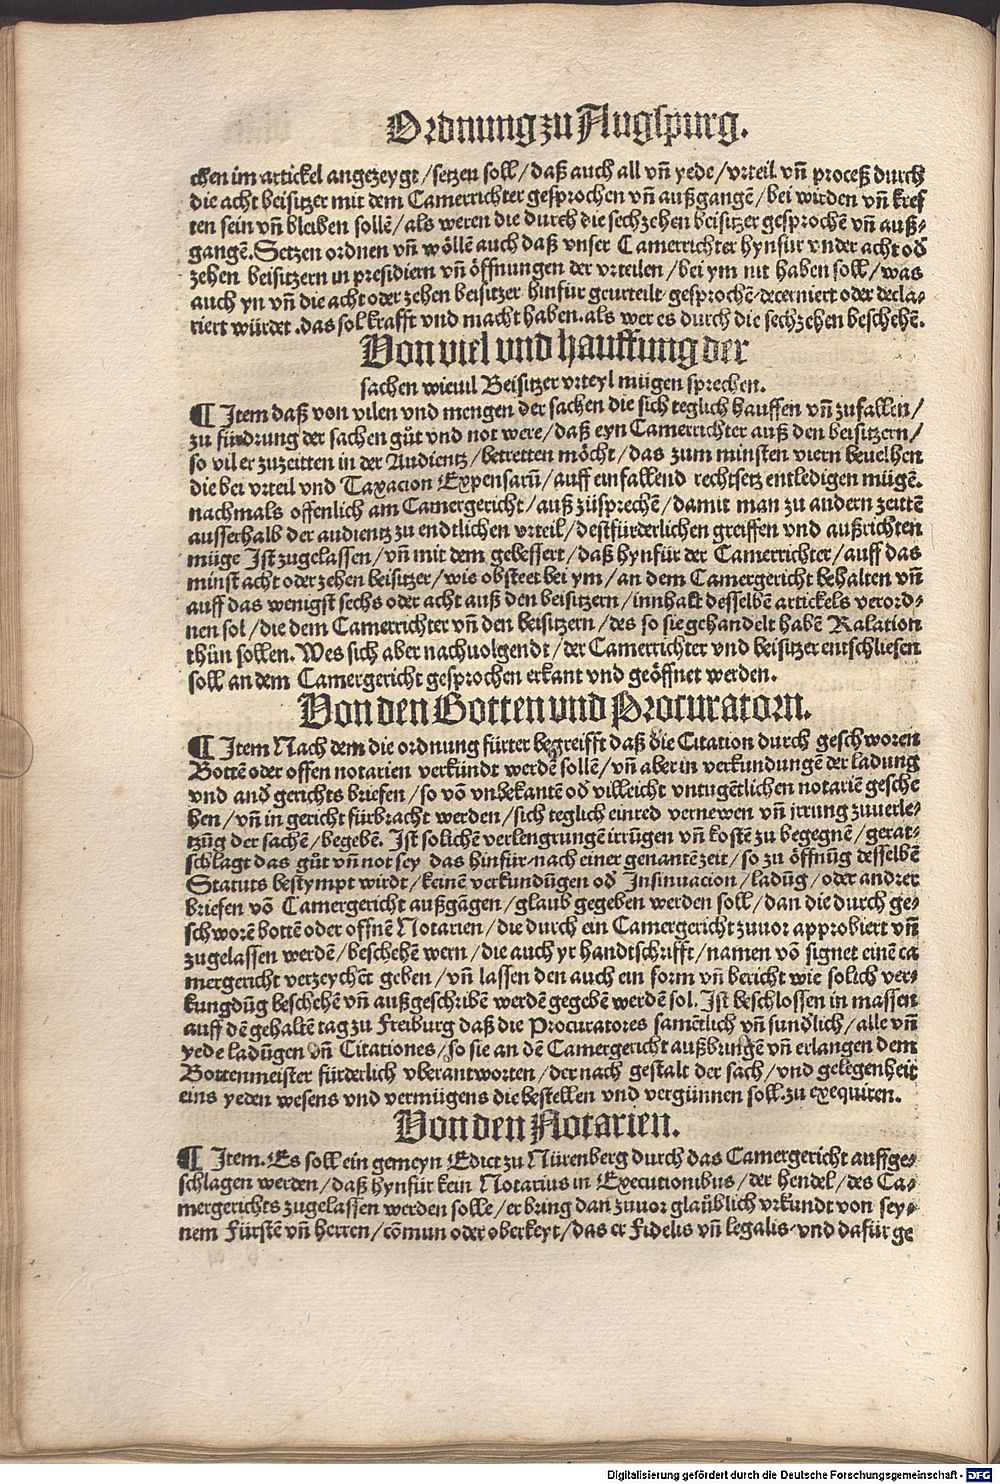 Ordnung zu Augspurg.
chen im artickel angezeygt / setzen soll / daß auch all vñ yede / vrteil vñ proceß durch
die acht beisitzer mit dem Camerrichter gesprochen vñ außgangẽ / bei wirden vñ kref
ten sein vñ bleiben sollẽ / als weren die durch die sechzehen beisitzer gesprochẽ vñ auß⸗
gangẽ. Setzen ordnen vñ wöllẽ auch daß vnser Camerrichter hynfür vnder acht od̃
zehen beisitzern in presidiern vñ öffnungen der vrteilen / bei ym nit haben soll / was
auch yn vñ die acht oder zehen beisitzer hinfür geurteilt gesprochẽ decerniert oder decla⸗
riert würdet . das sol krafft vnd macht haben. als wer es durch die sechzehen beschehẽ.
Von viel vnd hauffung der
sachen wieuil Beisitzer vrteyl mügen sprechen.
¶ Item daß von vilen vnd mengen der sachen die sich teglich hauffen vñ zufallen /
zu fürdrung der sachen gůt vnd not were / daß eyn Camerrichter auß den beisitzern /
so vil er zuzeitten in der Audientz / betretten möcht / das zum minsten viern beuelhen
die bei vrteil vnd Taxacion Expensarũ / auff einfallend rechtsetz entledigen mügẽ.
nachmals offenlich am Camergericht / auß zůsprechẽ / damit man zu andern zeittẽ
ausserhalb der audientz zu endtlichen vrteil / destfürderlichen greiffen vnd außrichten
müge Ist zugelassen / vñ mit dem gebessert / daß hynfür der Camerrichter / auff das
minst acht oder zehen beisitzer / wie obsteet bei ym / an dem Camergericht behalten vñ
auff das wenigst sechs oder acht auß den beisitzern / innhalt desselbẽ artickels verord⸗
nen sol / die dem Camerrichter vñ den beisitzern / des so sie gehandelt habẽ Ralation
thůn sollen. Wes sich aber nachuolgendt / der Camerrichter vnd beisitzer entschliesen
soll an dem Camergericht gesprochen erkant vnd geöffnet werden.
Von den Botten vnd Procuratorn.
¶ Item Nach dem die ordnung fürter begreifft daß die Citation durch geschworen
Bottẽ oder offen notarien verkündt werdẽ sollẽ / vñ aber in verkundungẽ der ladung
vnd and̃ gerichts briefen / so võ vnbekantẽ od̃ villeicht vntugẽtlichen notariẽ gesche
hen / vñ in gericht fürbracht werden / sich teglich einred vernewen vñ jrrung zuuerle⸗
tzũg der sachẽ / begebẽ. Ist solichẽ verlengrungẽ irrũgen vñ kostẽ zu begegnẽ / gerat⸗
schlagt das gůt vñ not sey das hinfür nach einer genantẽ zeit / so zu öffnũg desselbẽ
Statuts bestympt wirdt / keinẽ verkundũgen od̃ Insinuacion / ladũg / oder andrer
briefen võ Camergericht außgãgen / glaub gegeben werden soll / dan die durch ge⸗
schworẽ bottẽ oder offnẽ Notarien / die durch ein Camergericht zuuor approbiert vñ
zugelassen werdẽ / beschehẽ wern / die auch yr handtschrifft / namen võ signet einẽ ca
mergericht verzeychet geben / vñ lassen den auch ein form vñ bericht wie solich ver⸗
kungdũg beschehẽ vñ außgeschribẽ werdẽ gegebẽ werdẽ sol. Ist beschlossen in massen
auff dẽ gehaltẽ tag zu Freiburg daß die Procuratores samẽtlich vñ sund̃lich / alle vñ
yede ladũgen vñ Citationes / so sie an dẽ Camergericht außbringẽ vñ erlangen dem
Bottenmeister fürderlich vberantworten / der nach gestalt der sach / vnd gelegenheit
eins yeden wesens vnd vermügens die bestellen vnd vergünnen soll. zu exequiren.
Von den Notarien.
¶ Item. Es soll ein gemeyn Edict zu Nürenberg durch das Camergericht auffge⸗
schlagen werden / daß hynfür kein Notarius in Executionibus / der hendel / des Ca⸗
mergerichts zugelassen werden solle / er bring dan zuuor glaůblich vrkundt von sey⸗
nem Fürstẽ vñ herren / cõmun oder oberkeyt / das er Fidelis vñ legalis vnd dafür ge
Digitalisierung gefördert durch die Deutsche Forschungsgemeinschaft - DFG